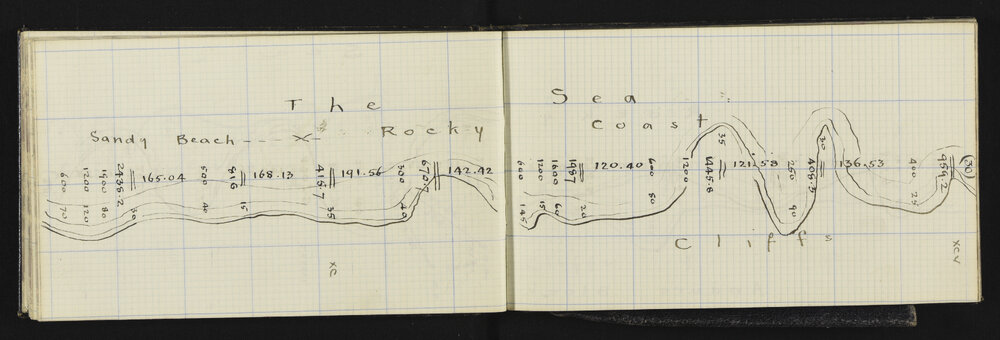 The Sea
Sandy Beach - - - x - Rocky Coast
600 1200 1900 2436.2 165.04 500 816 168.13 415.7 191.56 300 670.7 142.42
70 120 80 30 40 15 35 40
XC
600 1200 1600 1987 120.40 600 1200 1445.8 121.58 250 136.53 400 959.2 (30)
145 15 60 20 50 35 90 30 25
Cliffs
XCV